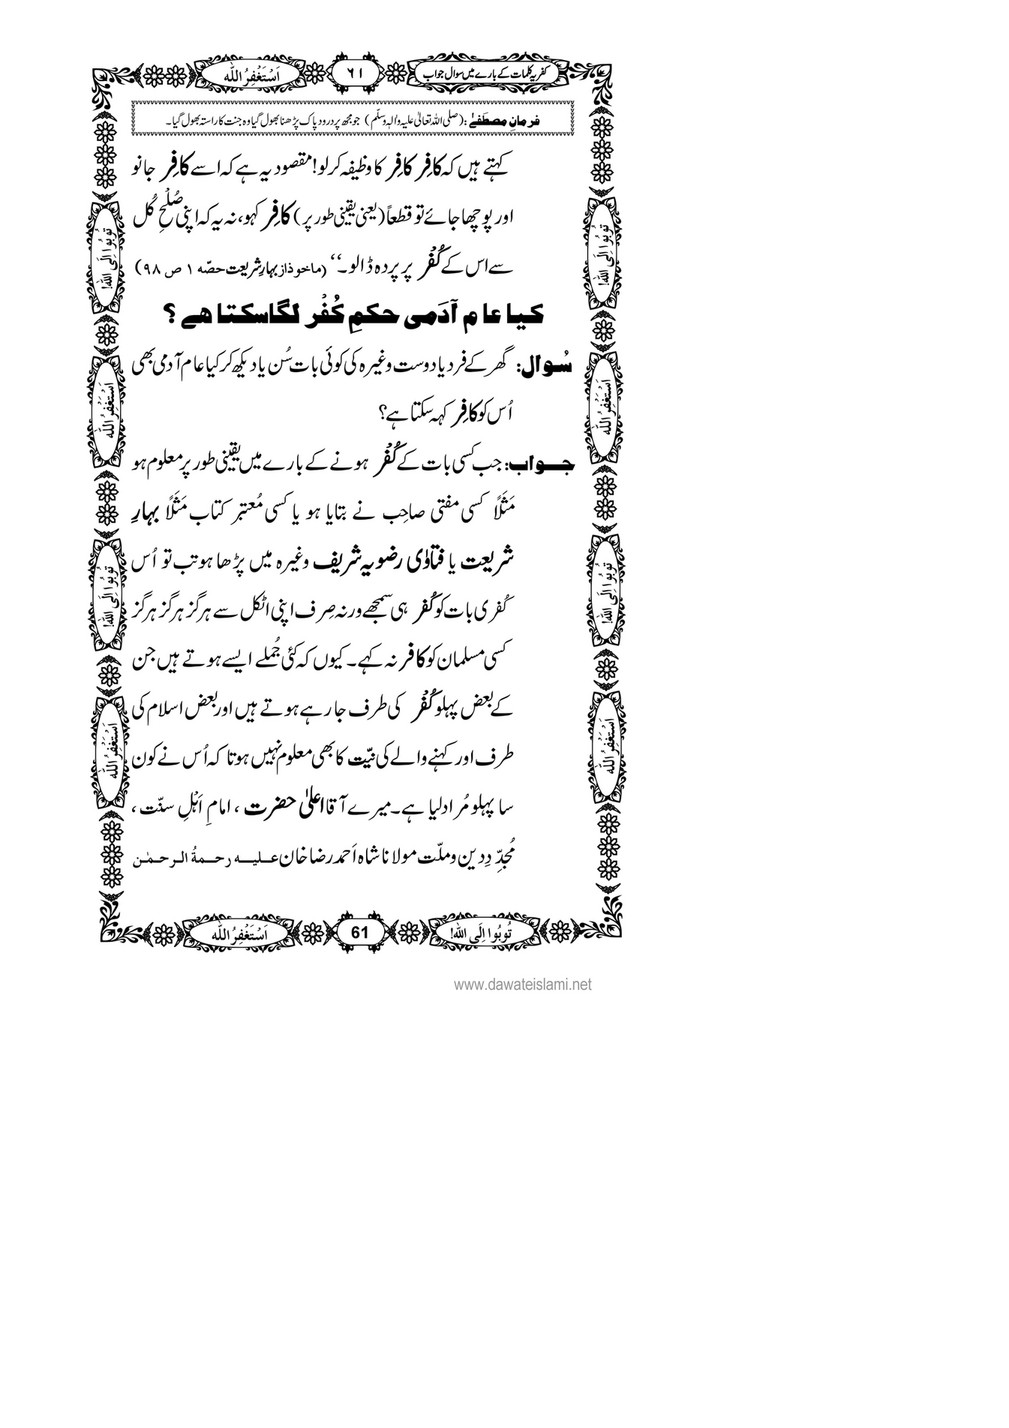 کفریہ کلمات کے بارے میں سوال جواب
٦١
اَسْتَغْفِرُ اللّٰه
فرمانِ مصطَفٰے : (صلی اللہ تعالیٰ علیہ والہٖ وسلّم) جو مجھ پر درود پاک پڑھنا بھول گیا وہ جنت کا راستہ بھول گیا۔
کہتے ہیں کہ کافِر کافِر کا وظیفہ کرلو! مقصود یہ ہے کہ اسے کافِر جانو
اور پوچھا جائے تو قطعاً (یعنی یقینی طور پر) کافِر کہو، نہ یہ کہ اپنی صُلْحِ کُل
سے اس کے کُفْر پر پردہ ڈالو۔‘‘ (ماخوذ از بہارِ شریعت حصّہ ١ ص ٩٨)
کیا عام آدَمی حکمِ کُفْر لگا سکتا ھے ؟
سُوال: گھر کے فرد یا دوست وغیرہ کی کوئی بات سُن یا دیکھ کر کیا عام آدمی بھی
اُس کو کافِر کہہ سکتا ہے؟
جواب: جب کسی بات کے کُفْر ہونے کے بارے میں یقینی طور پر معلوم ہو
مَثَلاً کسی مفتی صاحِب نے بتایا ہو یا کسی مُعتبر کتاب مَثَلاً بہارِ
شریعت یا فتاوٰی رضویہ شریف وغیرہ میں پڑھا ہو تب تو اُس
کُفری بات کو کُفْر ہی سمجھے ورنہ صِرف اپنی اٹکل سے ہرگز ہرگز ہرگز
کسی مسلمان کو کافر نہ کہے۔ کیوں کہ کئی جُملے ایسے ہوتے ہیں جن
کے بعض پہلو کُفْر کی طرف جا رہے ہوتے ہیں اور بعض اسلام کی
طرف اور کہنے والے کی نیّت کا بھی معلوم نہیں ہوتا کہ اُس نے کون
سا پہلو مُراد لیا ہے۔ میرے آقا اعلیٰ حضرت ، امامِ اَہْلِ سنّت ،
مُجَدِّدِ دین و ملّت مولانا شاہ اَحمد رضا خان علیہ رحمۃُ الرحمٰن
تُوبُوا اِلَی اللّٰه!
اَسْتَغْفِرُ اللّٰه
تُوبُوا اِلَی اللّٰه!
اَسْتَغْفِرُ اللّٰه
تُوبُوا اِلَی اللّٰه!
اَسْتَغْفِرُ اللّٰه
تُوبُوا اِلَی اللّٰه!
اَسْتَغْفِرُ اللّٰه
تُوبُوا اِلَی اللّٰه!
61
اَسْتَغْفِرُ اللّٰه
www.dawateislami.net